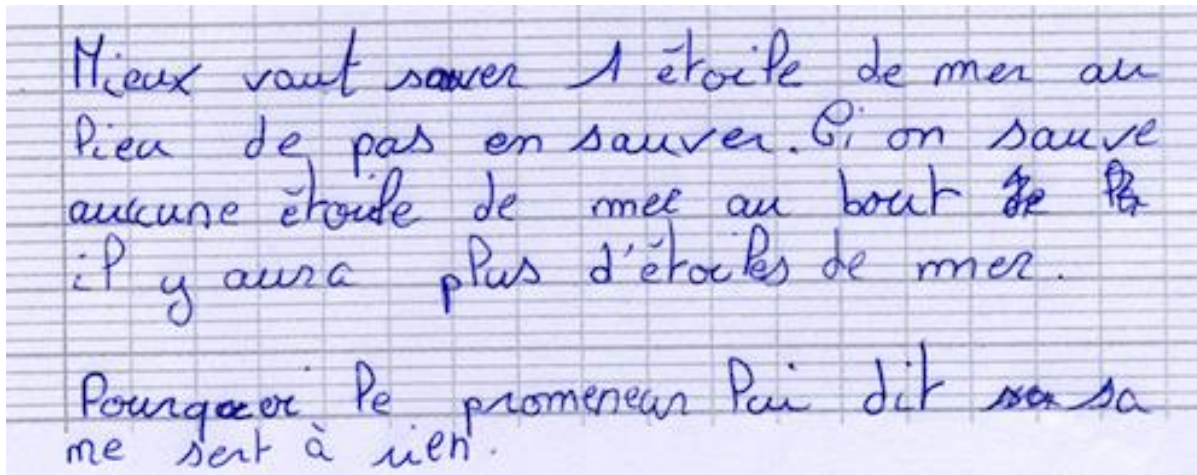 Mieux vaut sauver 1 étoile de mer au
lieu de pas en sauver. Si on sauve
aucune étoile de mer au bout
il y aura plus d'étoiles de mer.
Pourquoi le promeneur lui dit sa
me sert à rien.